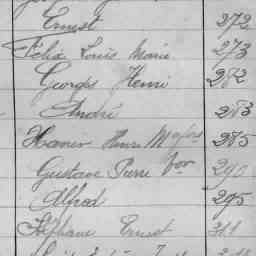 Ernest 272
Félix Louis Marie 273
Georges Henri 282
André 283
Xavier Henri 285
Gustave Pierre 290
Alfred 295
Stéphane Ernest 311